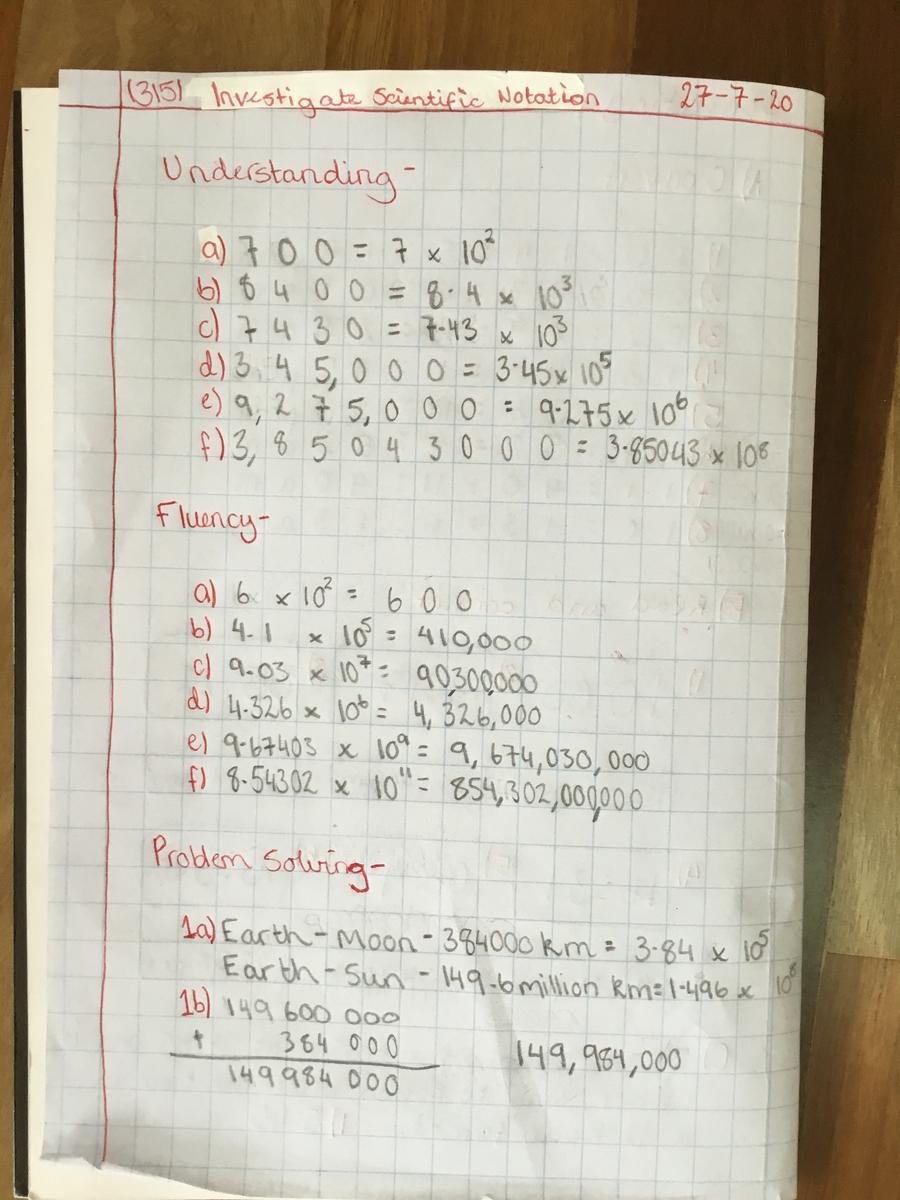 (315) Investigate Scientific Notation 27-7-20
Understanding -
a) 7 0 0 = 7 x 10²
b) 8 4 0 0 = 8.4 x 10³
c) 7 4 3 0 = 7.43 x 10³
d) 3 4 5,0 0 0 = 3.45 x 10⁵
e) 9,2 7 5,0 0 0 = 9.275 x 10⁶
f) 3,8 5 0 4 3 0 0 0 = 3.85043 x 10⁸
Fluency -
a) 6 x 10² = 6 0 0
b) 4.1 x 10⁵ = 410,000
c) 9.03 x 10⁷ = 90,300,000
d) 4.326 x 10⁶ = 4,326,000
e) 9.67403 x 10⁹ = 9,674,030,000
f) 8.54302 x 10¹¹ = 854,302,000,000
Problem Solving -
1a) Earth - Moon - 384000 km = 3.84 x 10⁵
Earth - Sun - 149.6 million km = 1.496 x 10⁸
1b) 149 600 000
+ 384 000 149,984,000
149984 000